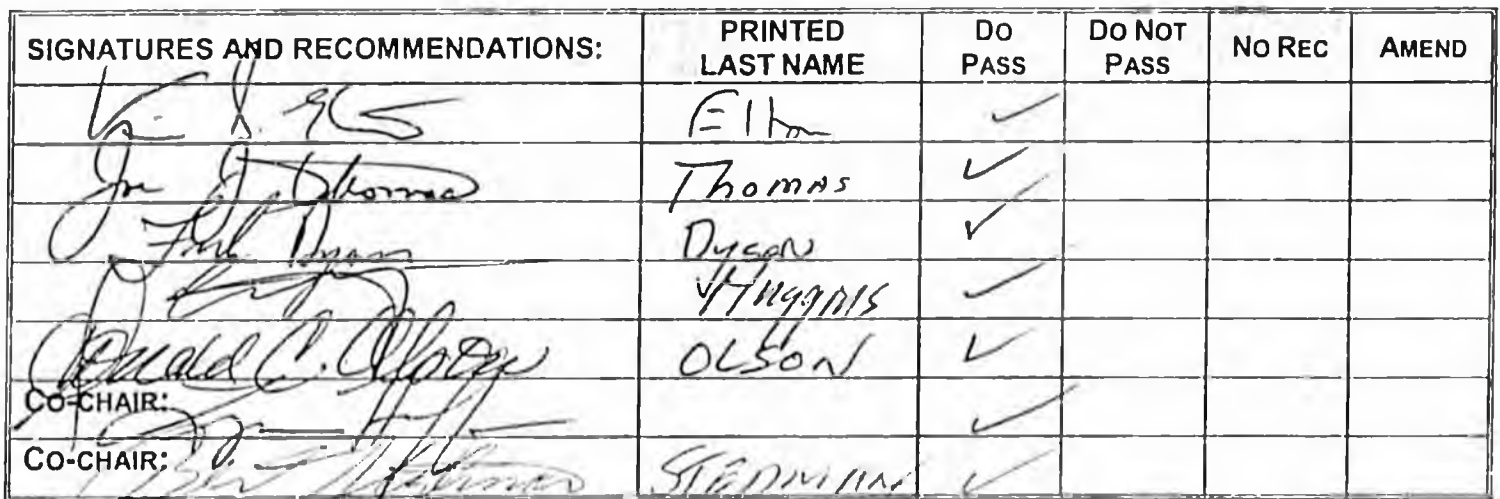 SIGNATURES AND RECOMMENDATIONS: PRINTED LAST NAME DO PASS DO NOT PASS NO REC AMEND
✓
Thomas Thomas ✓
Fred Dyson Dyson ✓
Huggins ✓
Donald C. Olson OLSON ✓
CO-CHAIR: ✓
CO-CHAIR: Stedman STEDMAN ✓